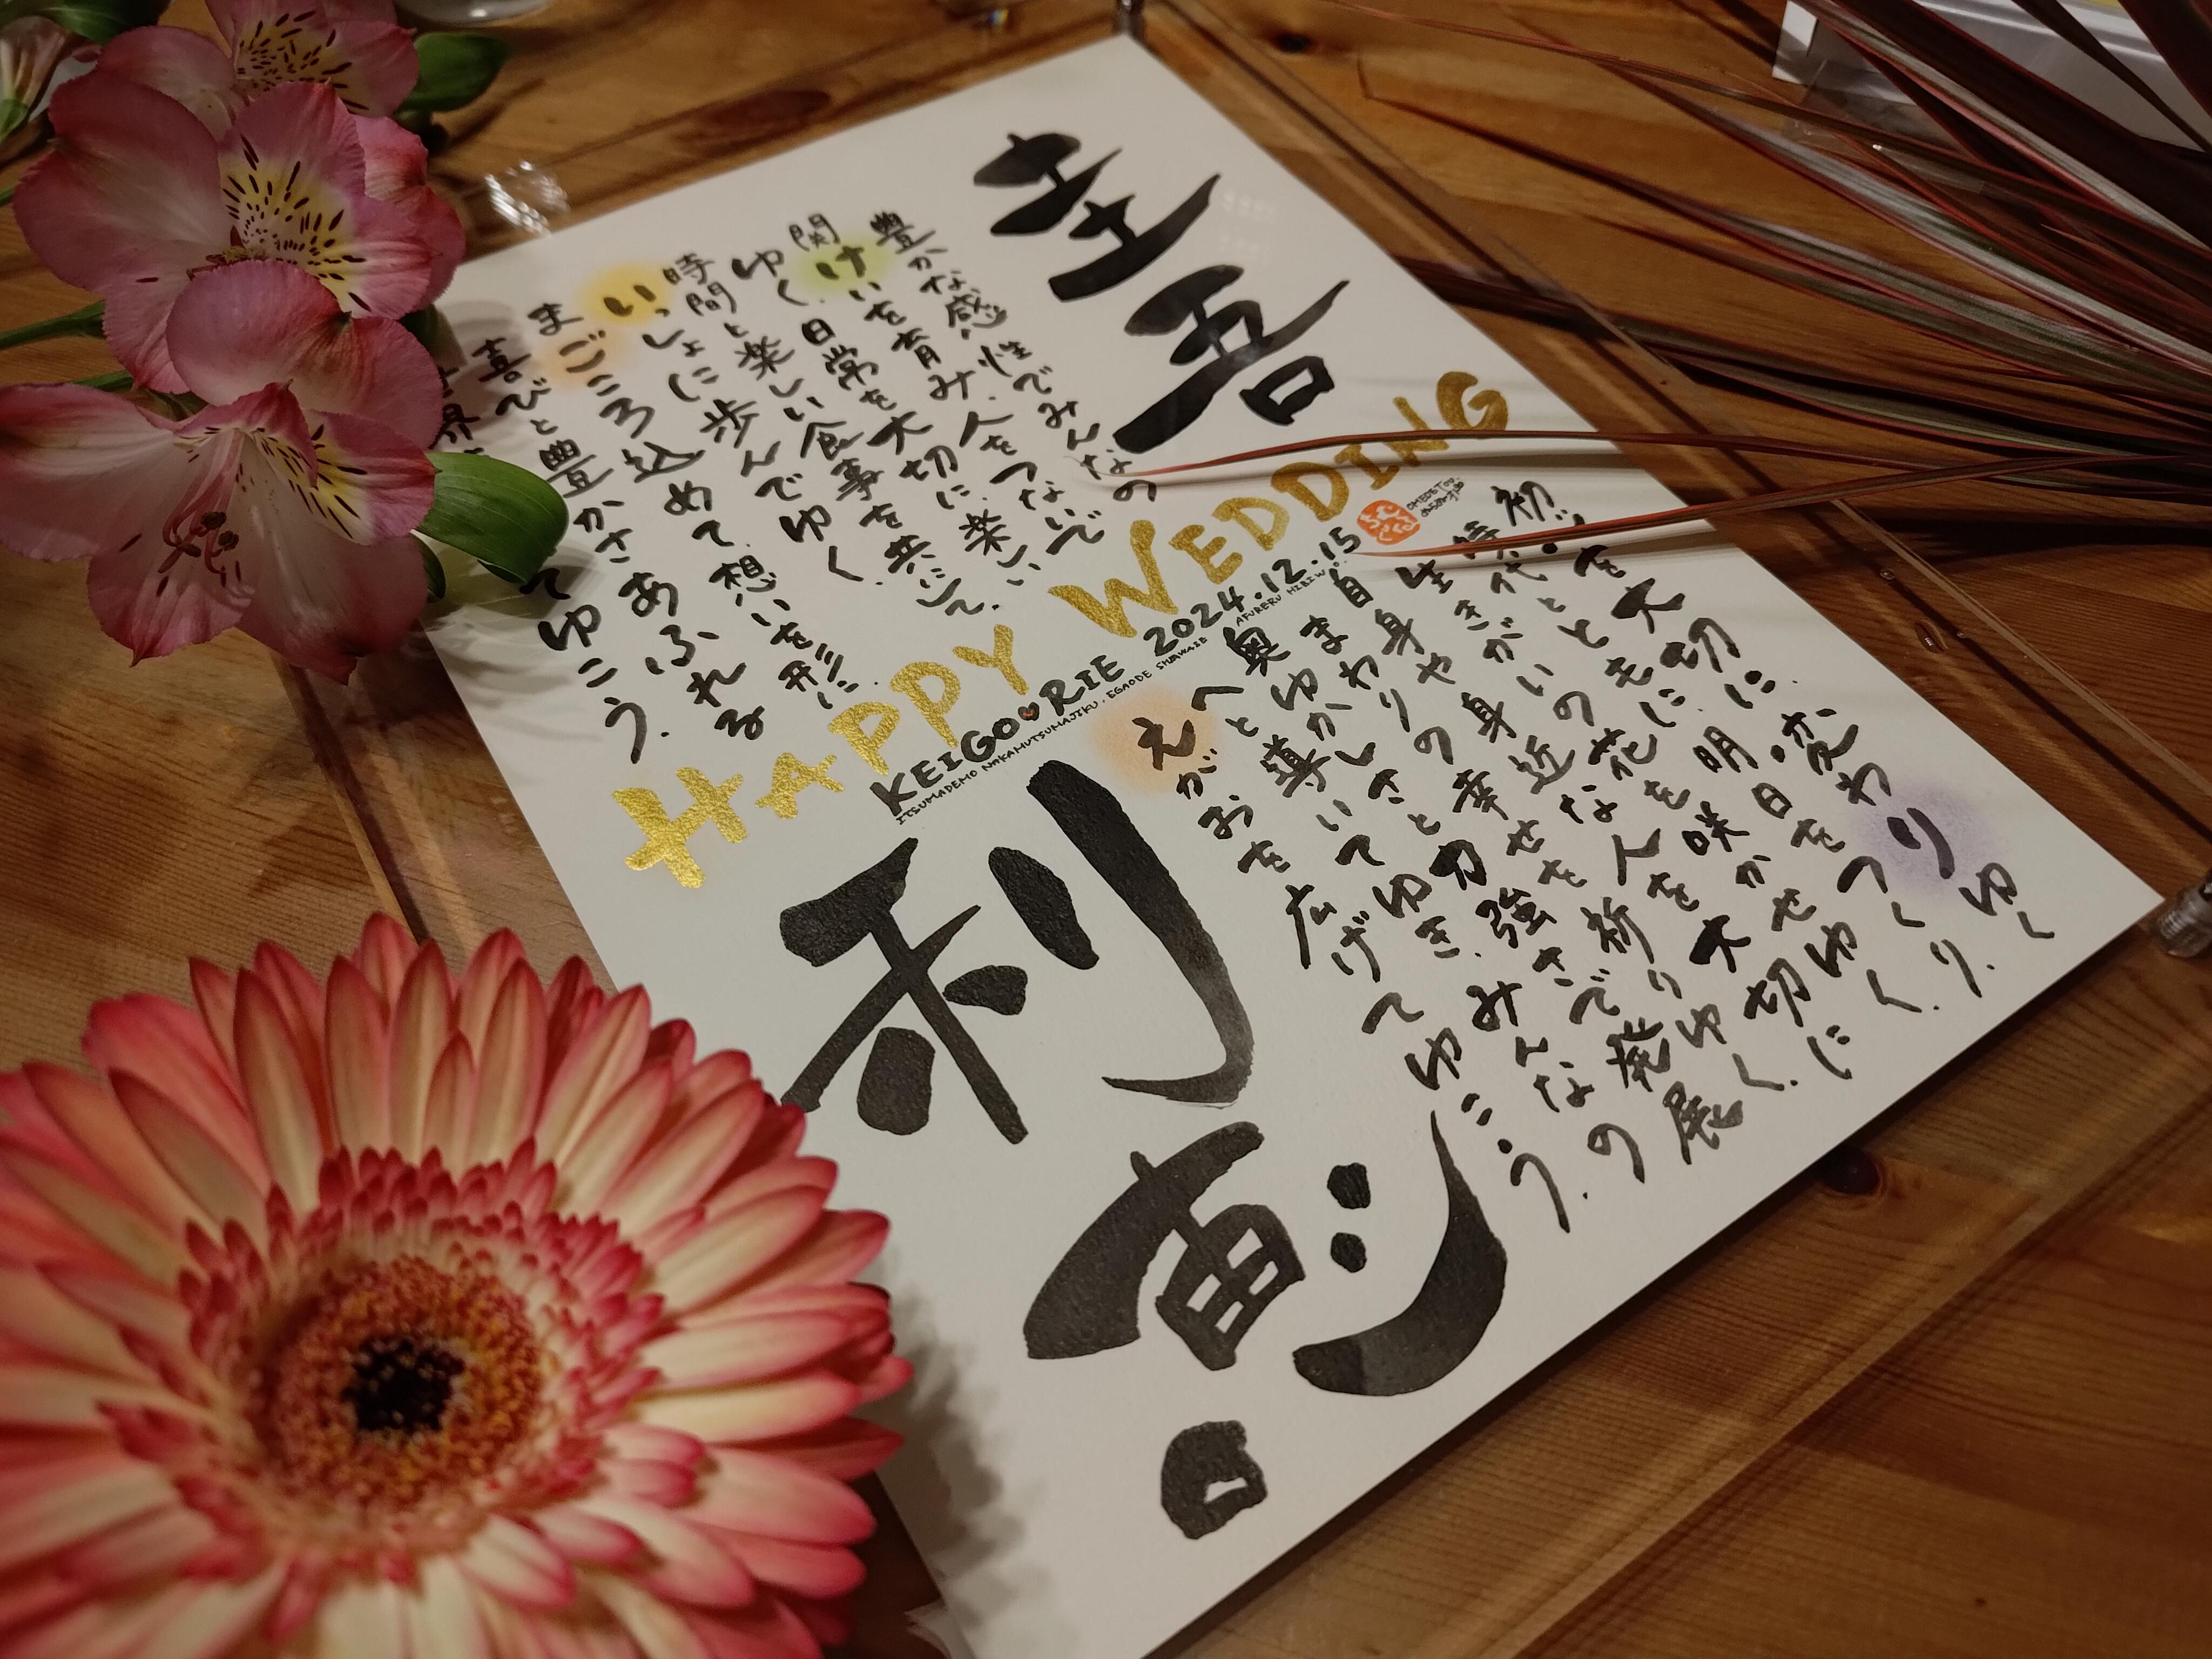 圭吾
豊かな感性でみんなの
関けいを育み、人をつないで
ゆく。日常を大切に、楽しい
時間と楽しい食事を共にして、
いっしょに歩んでゆく。
まごころ込めて、想いを形に
喜びと豊かさあふれる
界
てゆこう。
HAPPY WEDDING
KEIGO♥RIE 2024.12.15
ITSUMADEMO NAKAMUTSUMAJIKU, EGAODE SHIAWASE AFURERU HIBI
初 を大切に、変わりゆく
時代とともに、明日をつくり、
生きがいの花を咲かせゆく。
自身や身近な人を大切に
まわりの幸せを祈りゆく。
奥ゆかしさと力強さで発展
へと導いてゆき、みんなの
えがおを広げてゆこう。
利恵